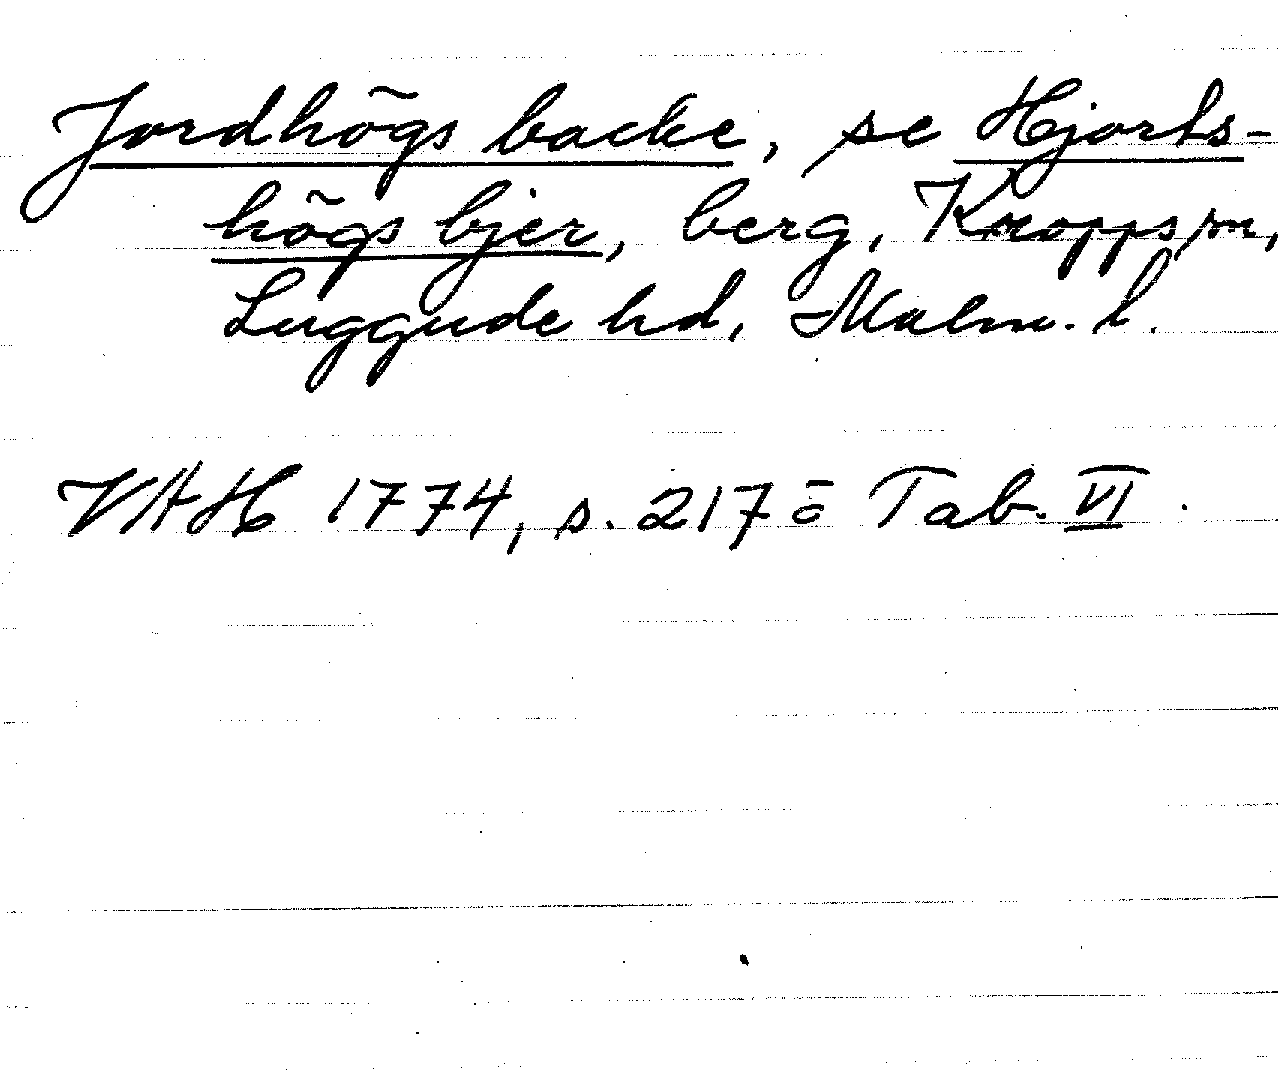 Jordhögs backe, se Hjorts-
högs bjer, berg, Kropps sn,
Luggude hd, Malm. l.
VAH 1774, s. 217 o Tab. VI.